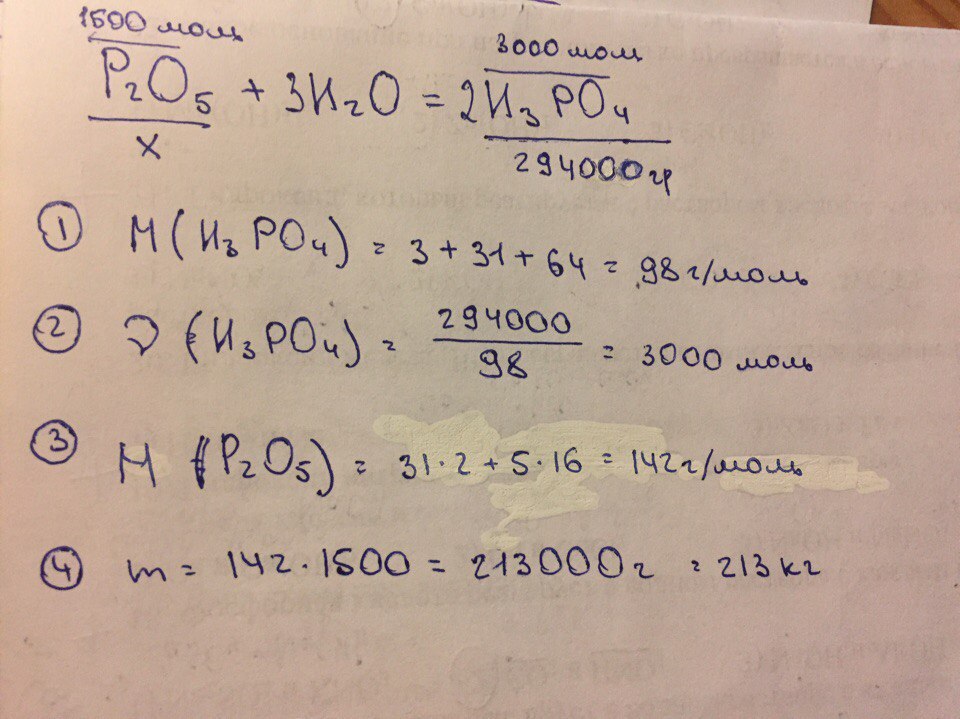 1500 моль 3000 моль
P₂O₅ + 3H₂O = 2H₃PO₄
x 294000 гр
① M (H₃PO₄) = 3 + 31 + 64 = 98 г/моль
② ν (H₃PO₄) = 294000/98 = 3000 моль
③ M (P₂O₅) = 31·2 + 5·16 = 142 г/моль
④ m = 142·1500 = 213000 г = 213 кг